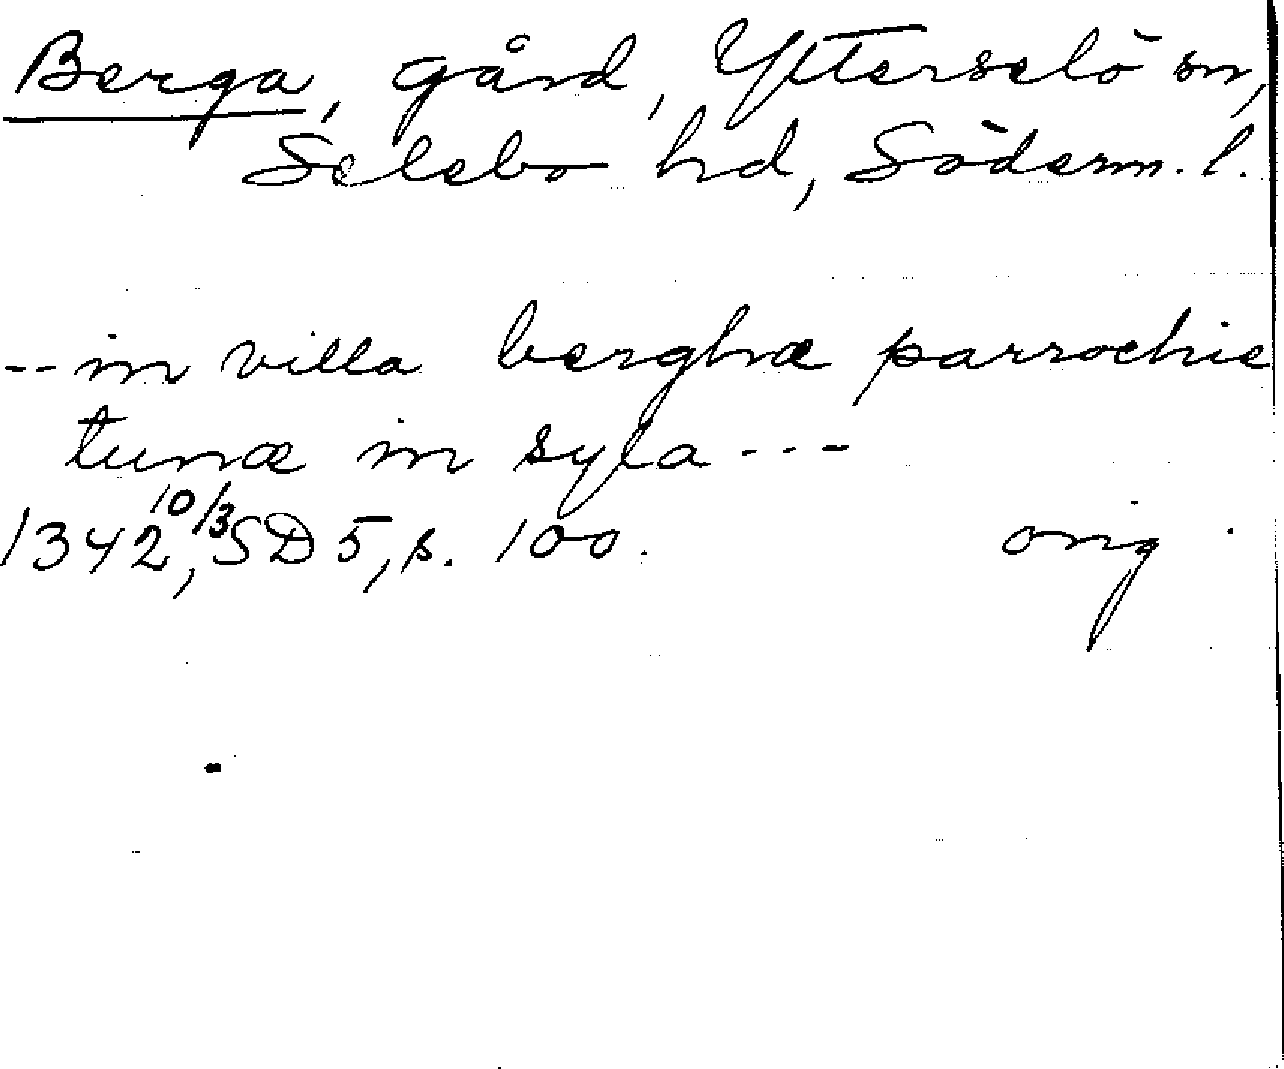 Berga, gård, Ytterselö sn,
Selebo hd, Söderm. l.
-- in villa berghæ parrochie
tunæ in syla ---
1342, 10/3 SD 5, s. 100. orig.